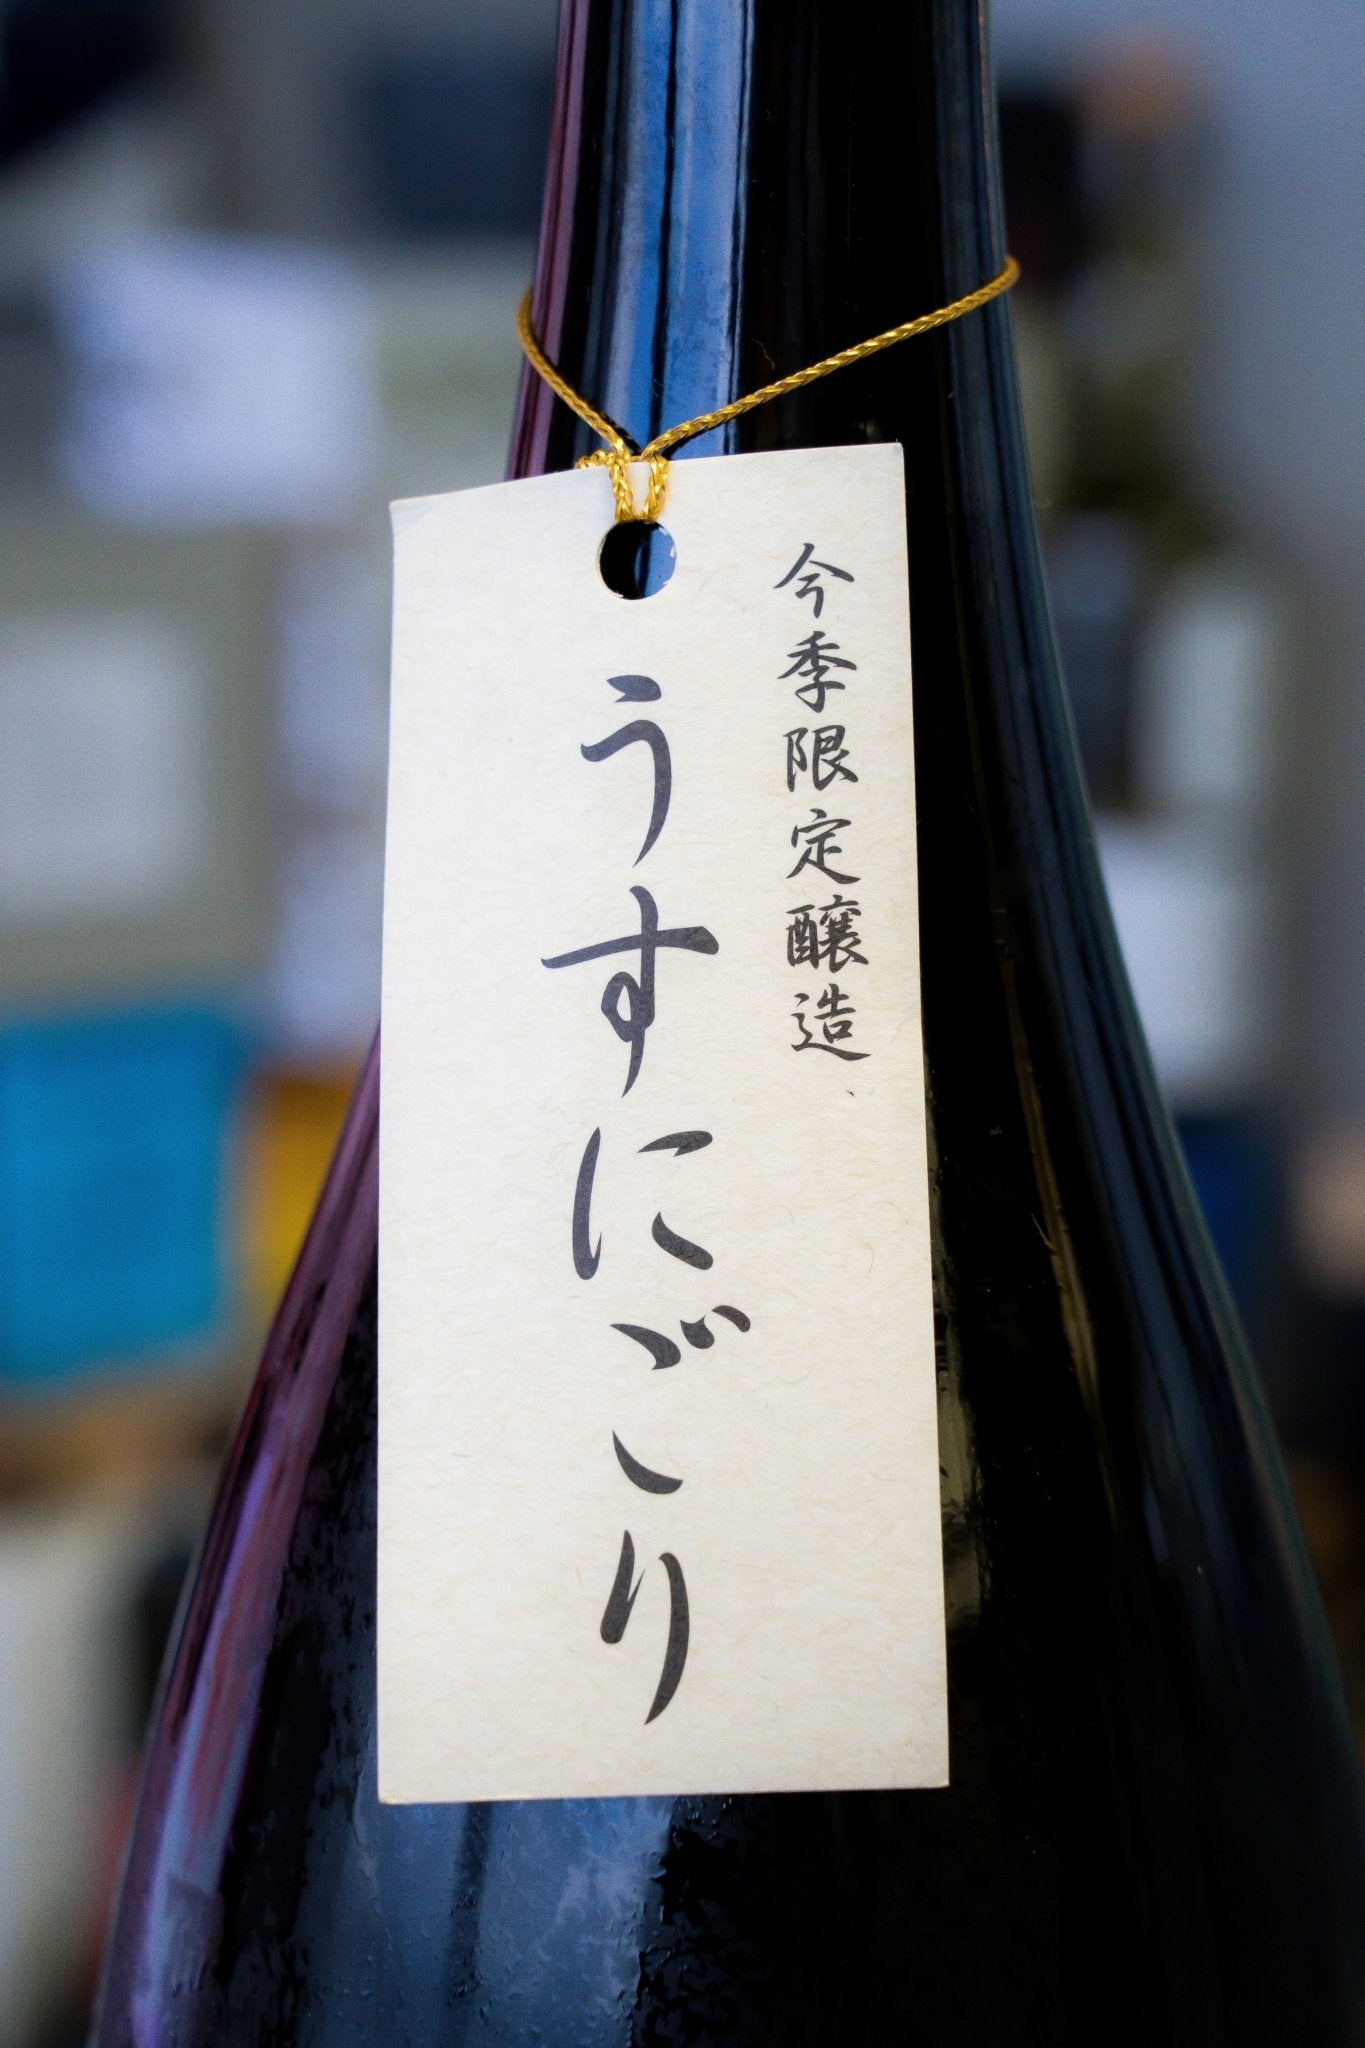 今季限定醸造
うすにごり